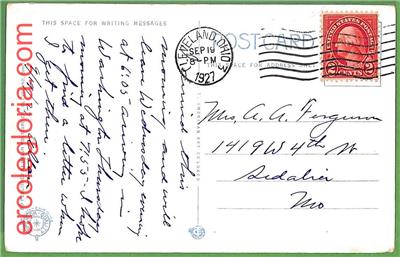 THIS SPACE FOR WRITING MESSAGES
POST CARD
THIS SPACE FOR ADDRESS ONLY
CLEVELAND, OHIO
SEP 19
8-PM
1927
UNITED STATES POSTAGE
2 CENTS 2
Arrived this
morning and will
leave Wednesday evening
at 6:05 - arriving in
Washington Thursday
morning at 7:55 - I hope
to find a letter when
I get there.
Mrs. A. A. Ferguson
1419 W 4th St
Sedalia
Mo
ercolegloria.com